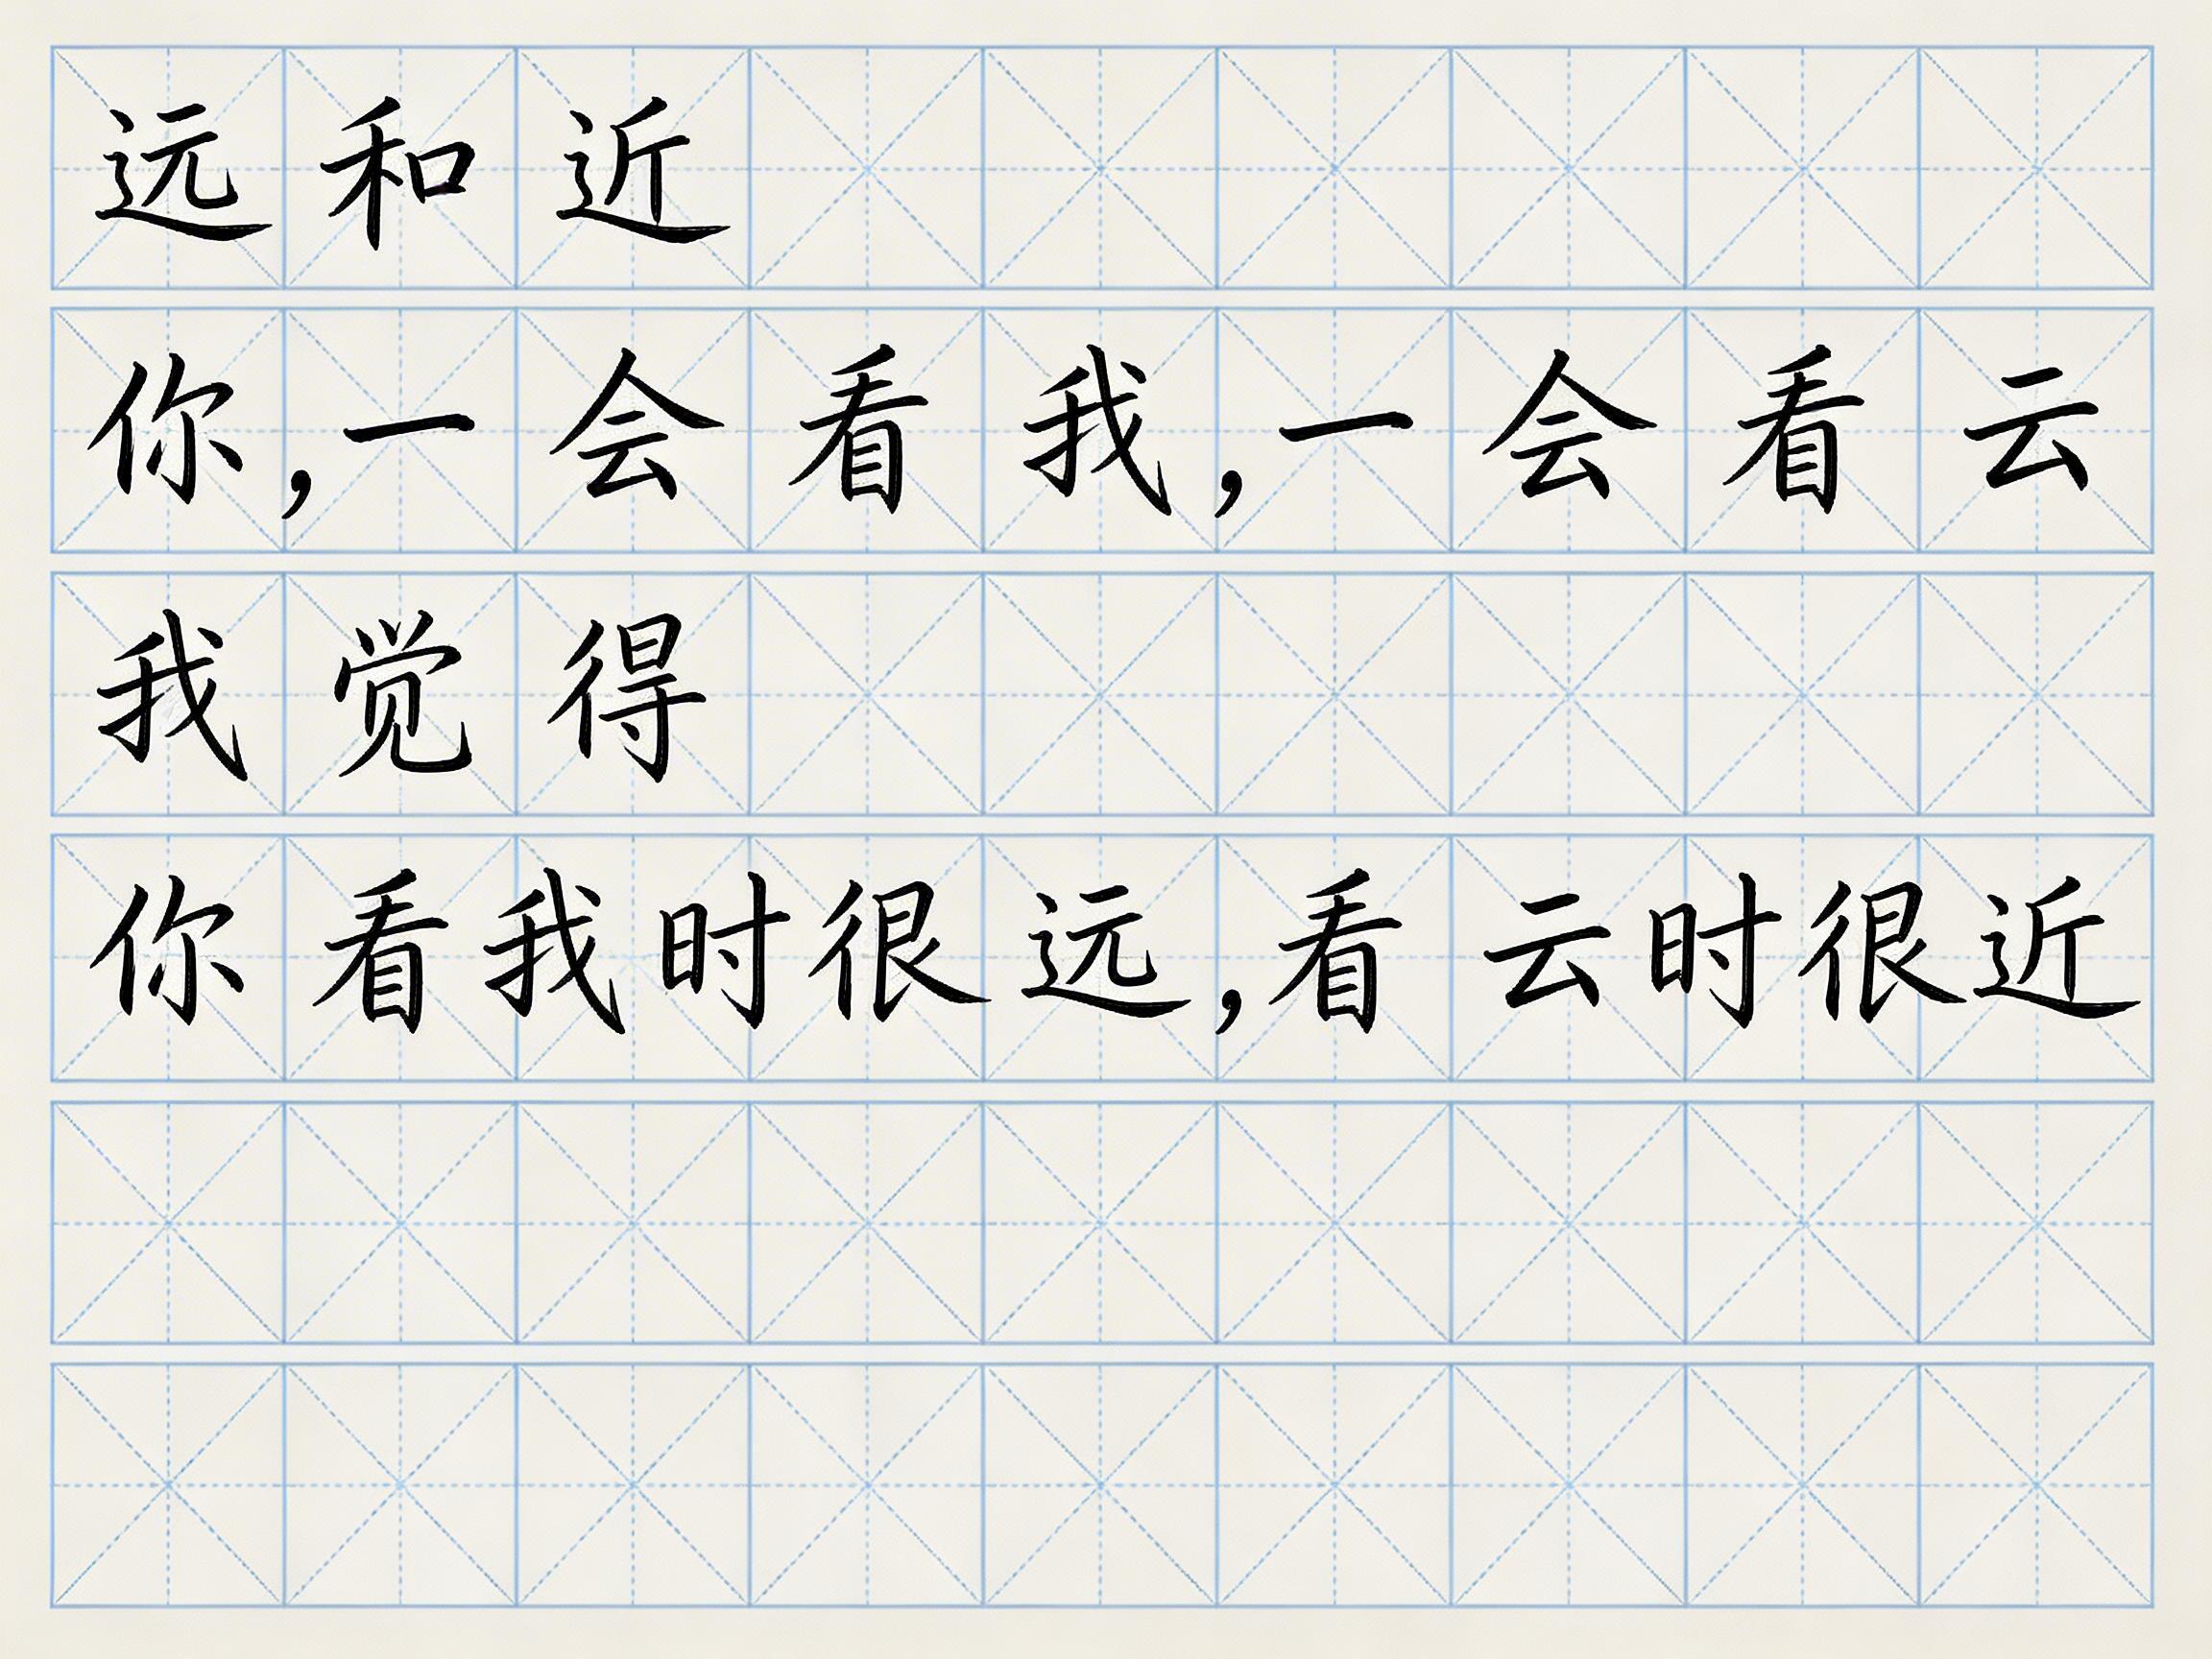 远和近
你,一会看我,一会看云
我觉得
你看我时很远,看云时很近